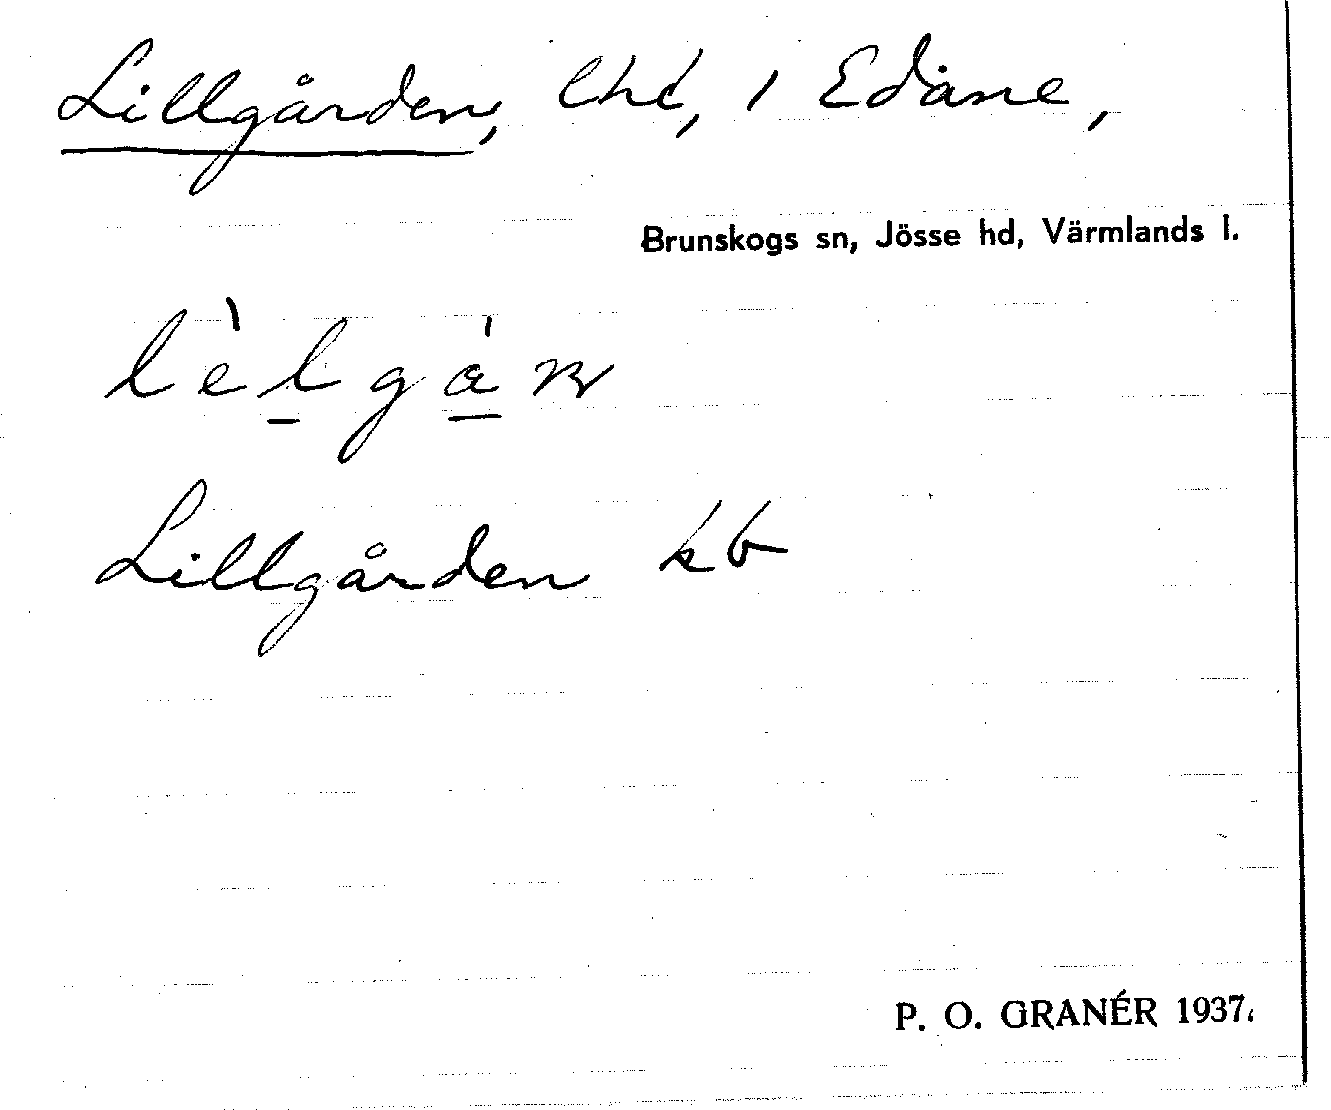 Lillgården, lht, i Edane,
Brunskogs sn, Jösse hd, Värmlands l.
Lillgården kb
P. O. GRANÉR 1937.